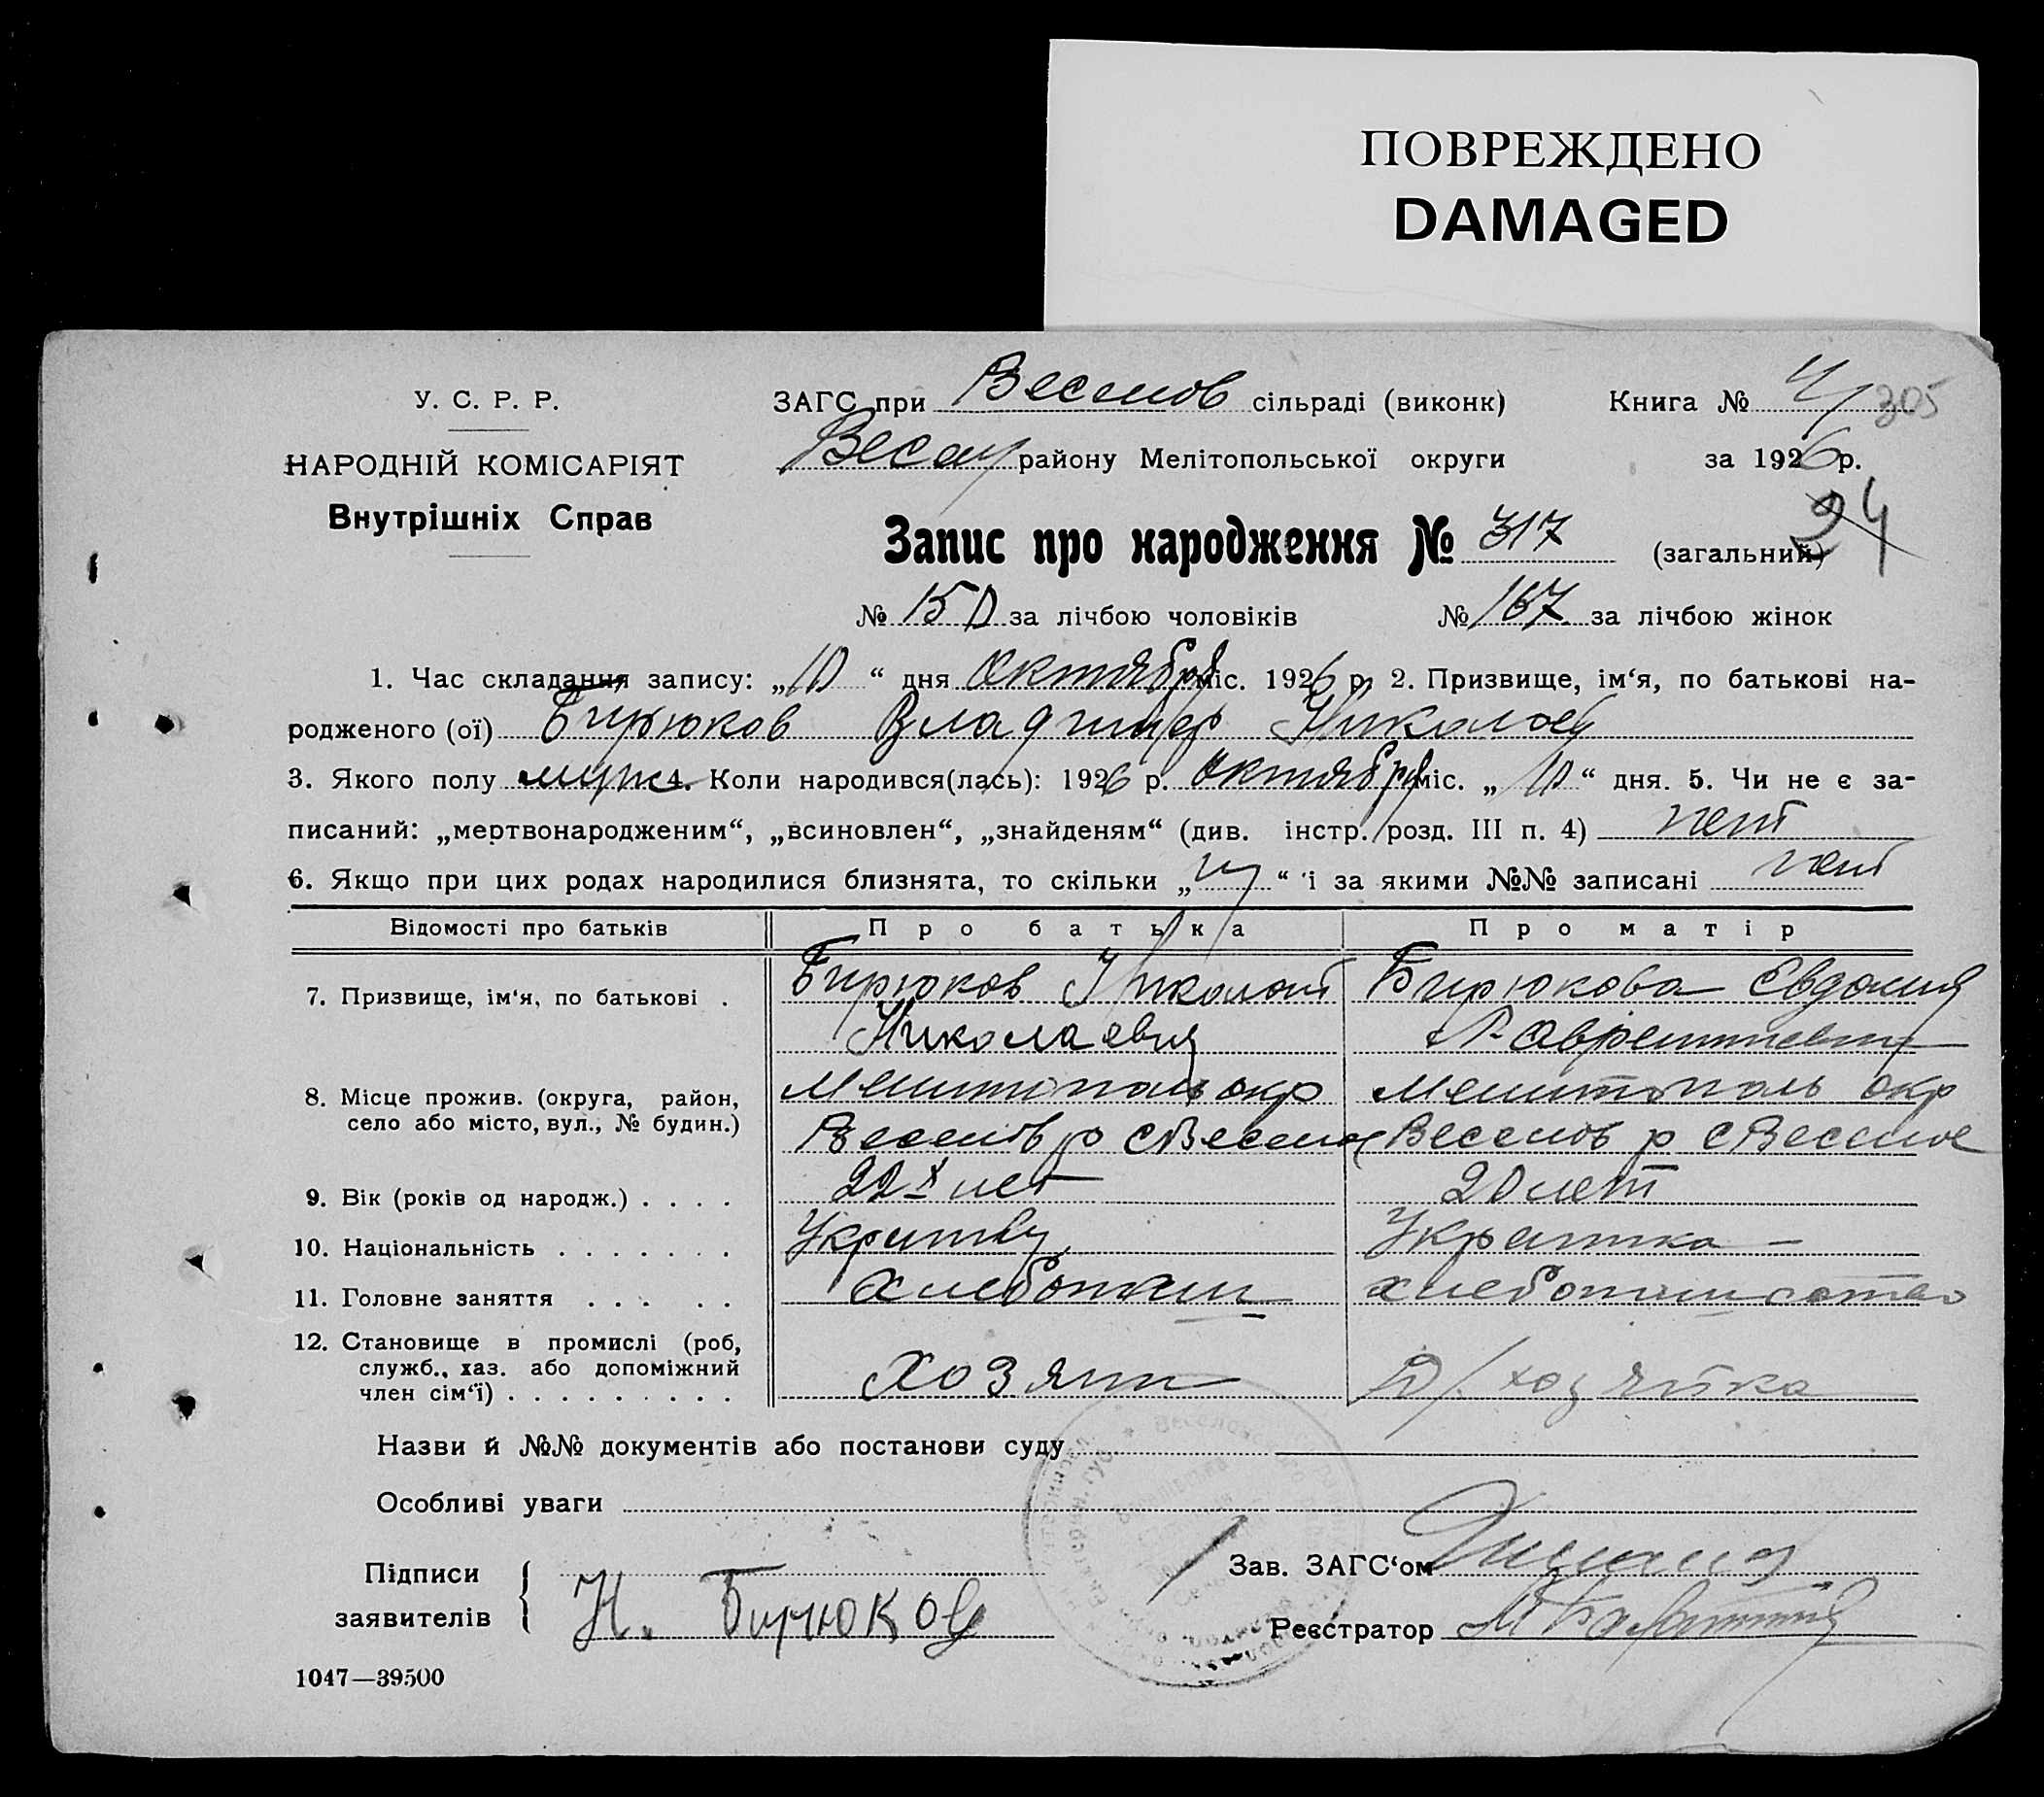 ПОВРЕЖДЕНО
DAMAGED
У. С. Р. Р.
НАРОДНІЙ КОМІСАРІЯТ
Внутрішніх Справ
ЗАГС при Веселов сільраді (виконк) Книга № 4/ 305
Весел району Мелітопольської округи за 1926 р.
24
Запис про народження № 317 (загальний)
№ 150 за лічбою чоловіків № 167 за лічбою жінок
1. Час складання запису: „10“ дня Октября міс. 1926 р. 2. Призвище, ім‘я, по батькові на-
родженого (ої) Бирюков Владимир Николаев
3. Якого полу муж 4. Коли народився(лась): 1926 р. Октября міс. „10“ дня. 5. Чи не є за-
писаний: „мертвонародженим“, „всиновлен“, „знайденям“ (див. інстр. розд. III п. 4) нет
6. Якщо при цих родах народилися близнята, то скільки „ “ і за якими №№ записані нет
Відомості про батьків Про батька Про матір
7. Призвище, ім‘я, по батькові . Бирюков Николай Бирюкова Евдокия
Николаевич Лаврентиевна
8. Місце прожив. (округа, район, Мелитополь окр Мелитополь окр
село або місто, вул., № будин.) Веселов р с Веселое Веселов р с Веселое
9. Вік (років од народж.) . . . . 22х лет 20 лет
10. Національність . . . . . . . Украинка
11. Головне заняття . . . . . Хлебопаш хлебопашество
12. Становище в промислі (роб,
служб., хаз. або допоміжний
член сім‘ї) . . . . . . . . . Хозяин Д/хозяйка
Назви й №№ документів або постанови суду
Особливі уваги
Підписи Зав. ЗАГС‘ом
заявителів Н. Бирюков Реєстратор
1047—39500